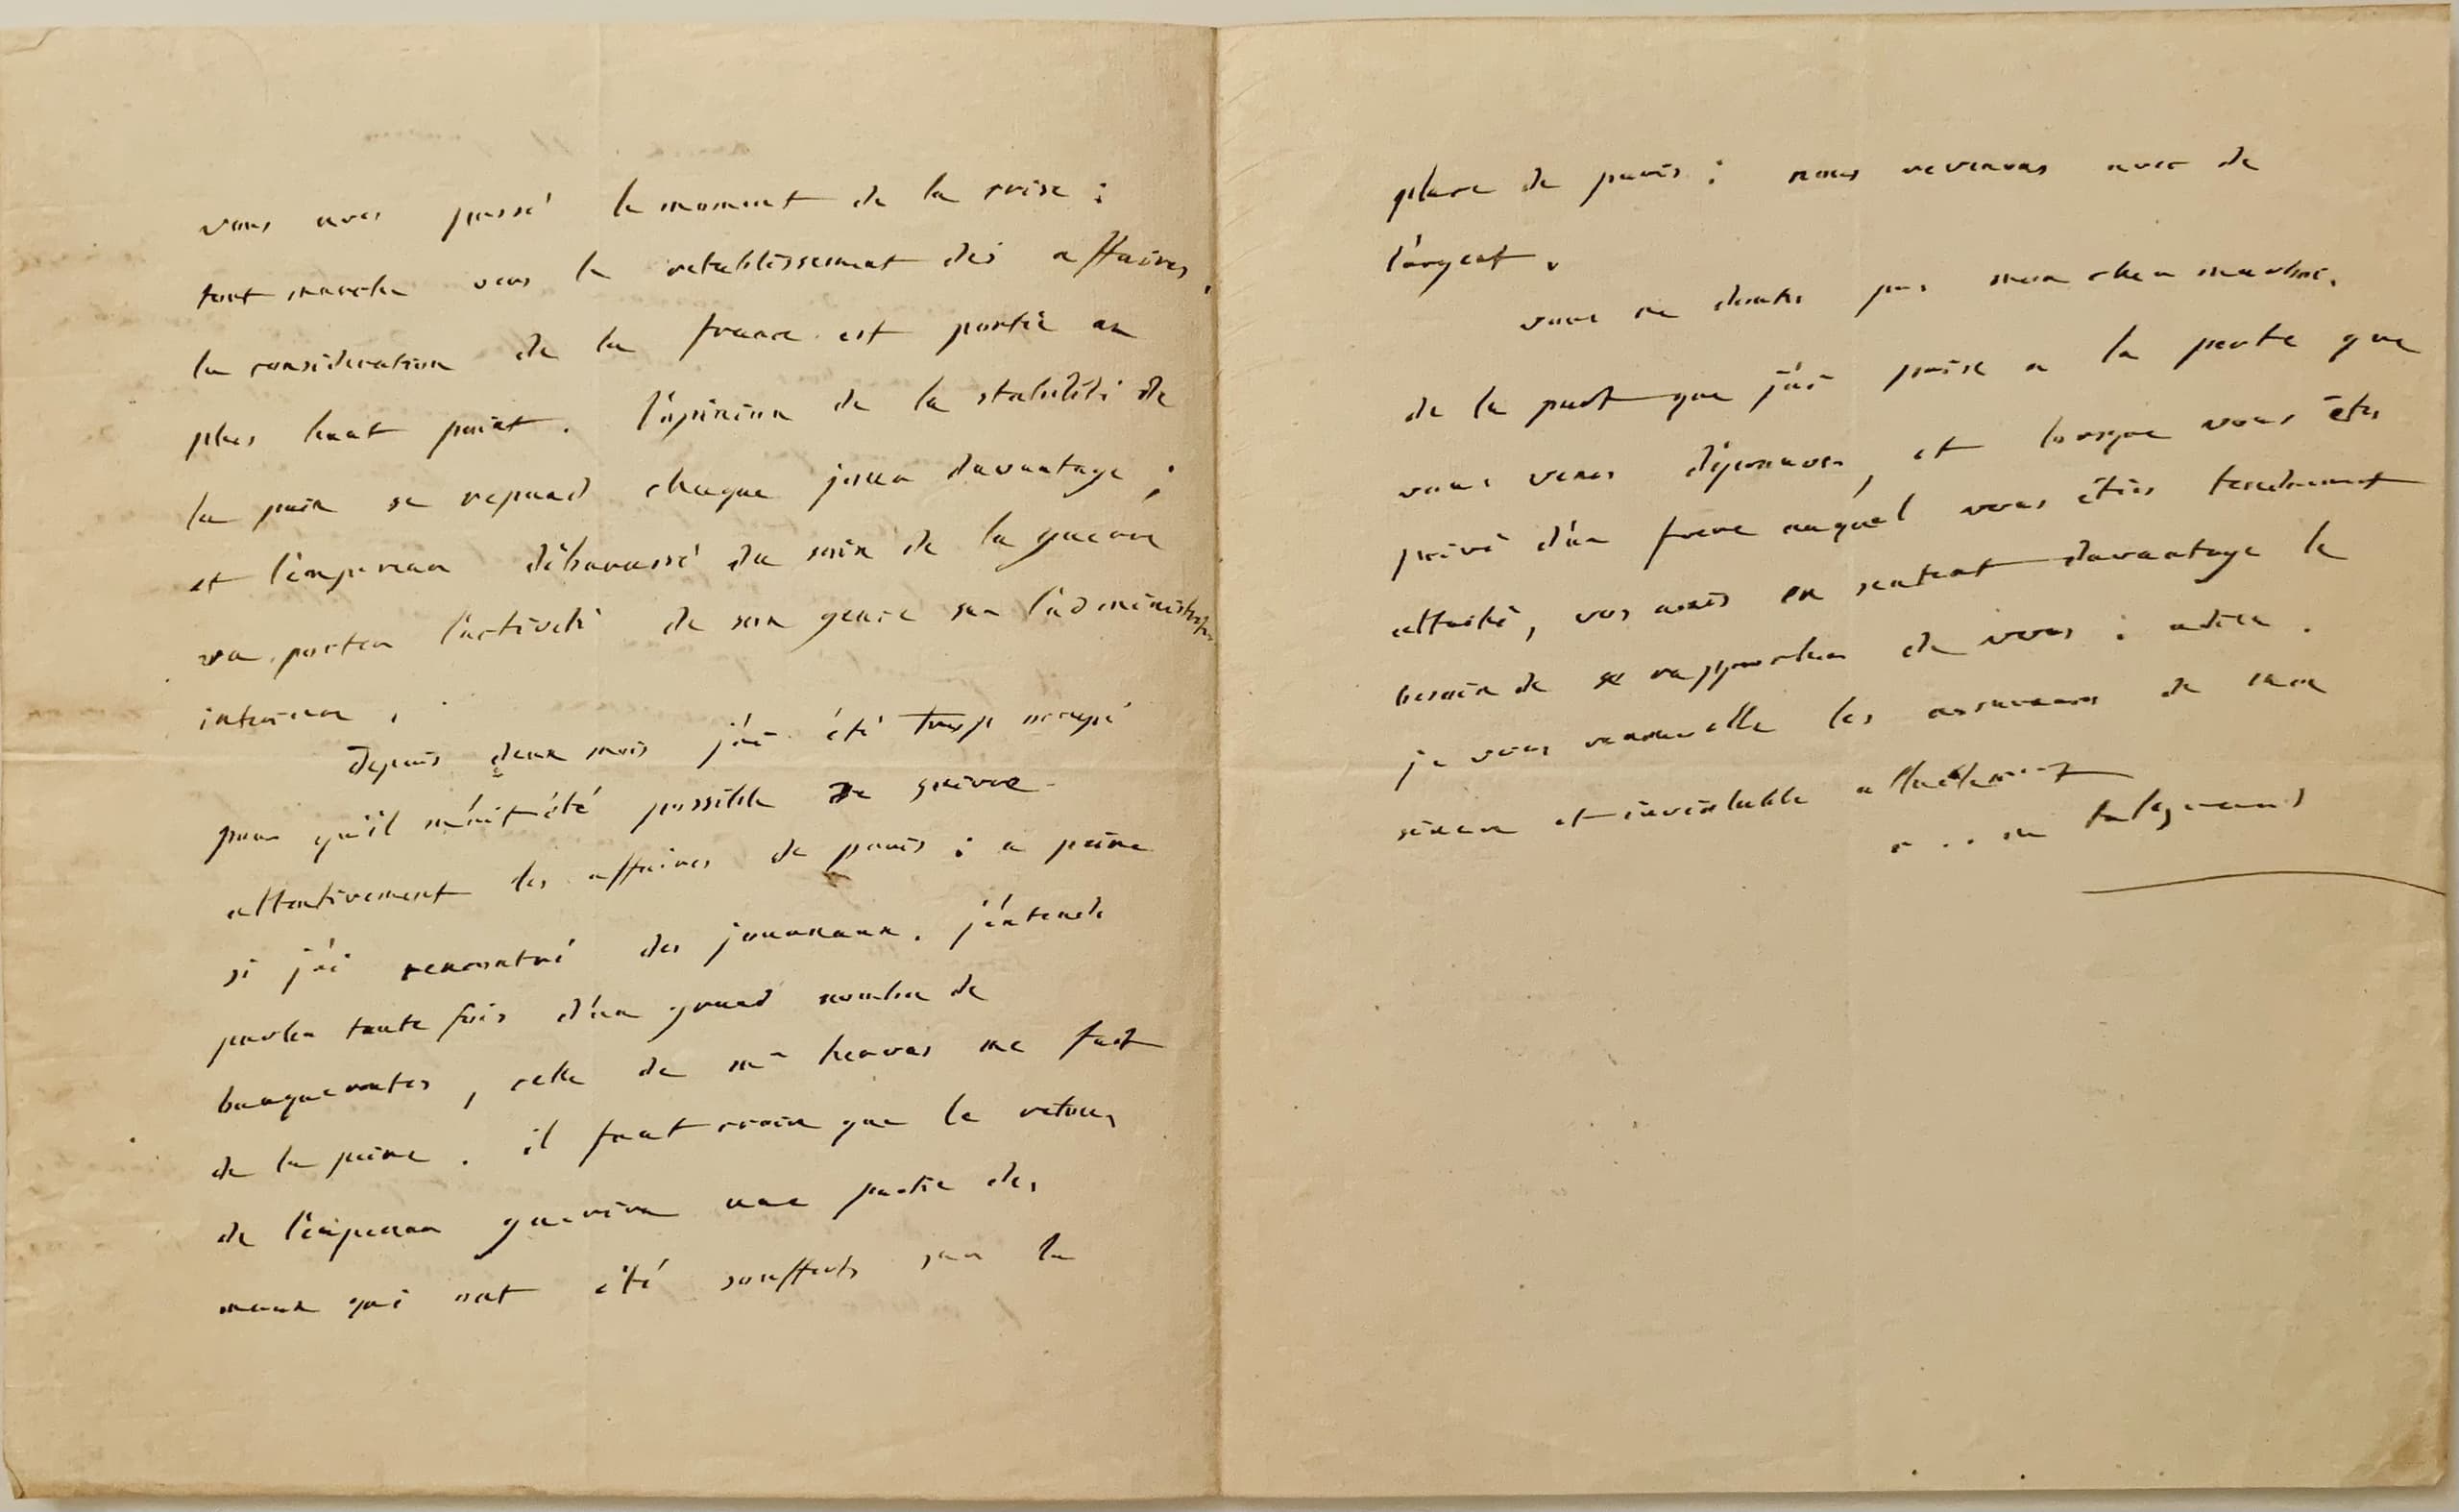 vous avez passé le moment de la crise :
tout marche vers le retablissement des affaires,
la consideration de la france est portée au
plus haut point. l'opinion de la stabilité de
la paix se repand chaque jour davantage ;
et l'empereur débarassé du soin de la guerre
va porter l'activité de son genie sur l'administration
interieur.
Depuis deux mois j'ai été trop occupé
pour qu'il m'ait été possible de suivre
attentivement les affaires de paris : a peine
si j'ai rencontré des journaux. j'entends
parler toute fois d'un grand nombre de
banqueroutes, celle de me fait
de la peine. il faut croire que le retour
de l'empereur guerira une partie des
maux qui ont été soufferts sur la
place de paris : nous revenons avec de
l'argent.
vous ne doutés pas mon cher
de la part que j'ai prise a la perte que
vous venez d'éprouver, et lorsque vous êtes
privé d'un frere auquel vous étiés tendrement
attaché, vos amis en sentent davantage le
besoin de se rapprocher de vous : adieu.
je vous renouvelle les assurances de mon
sincere et inviolable attachement
talleyrand